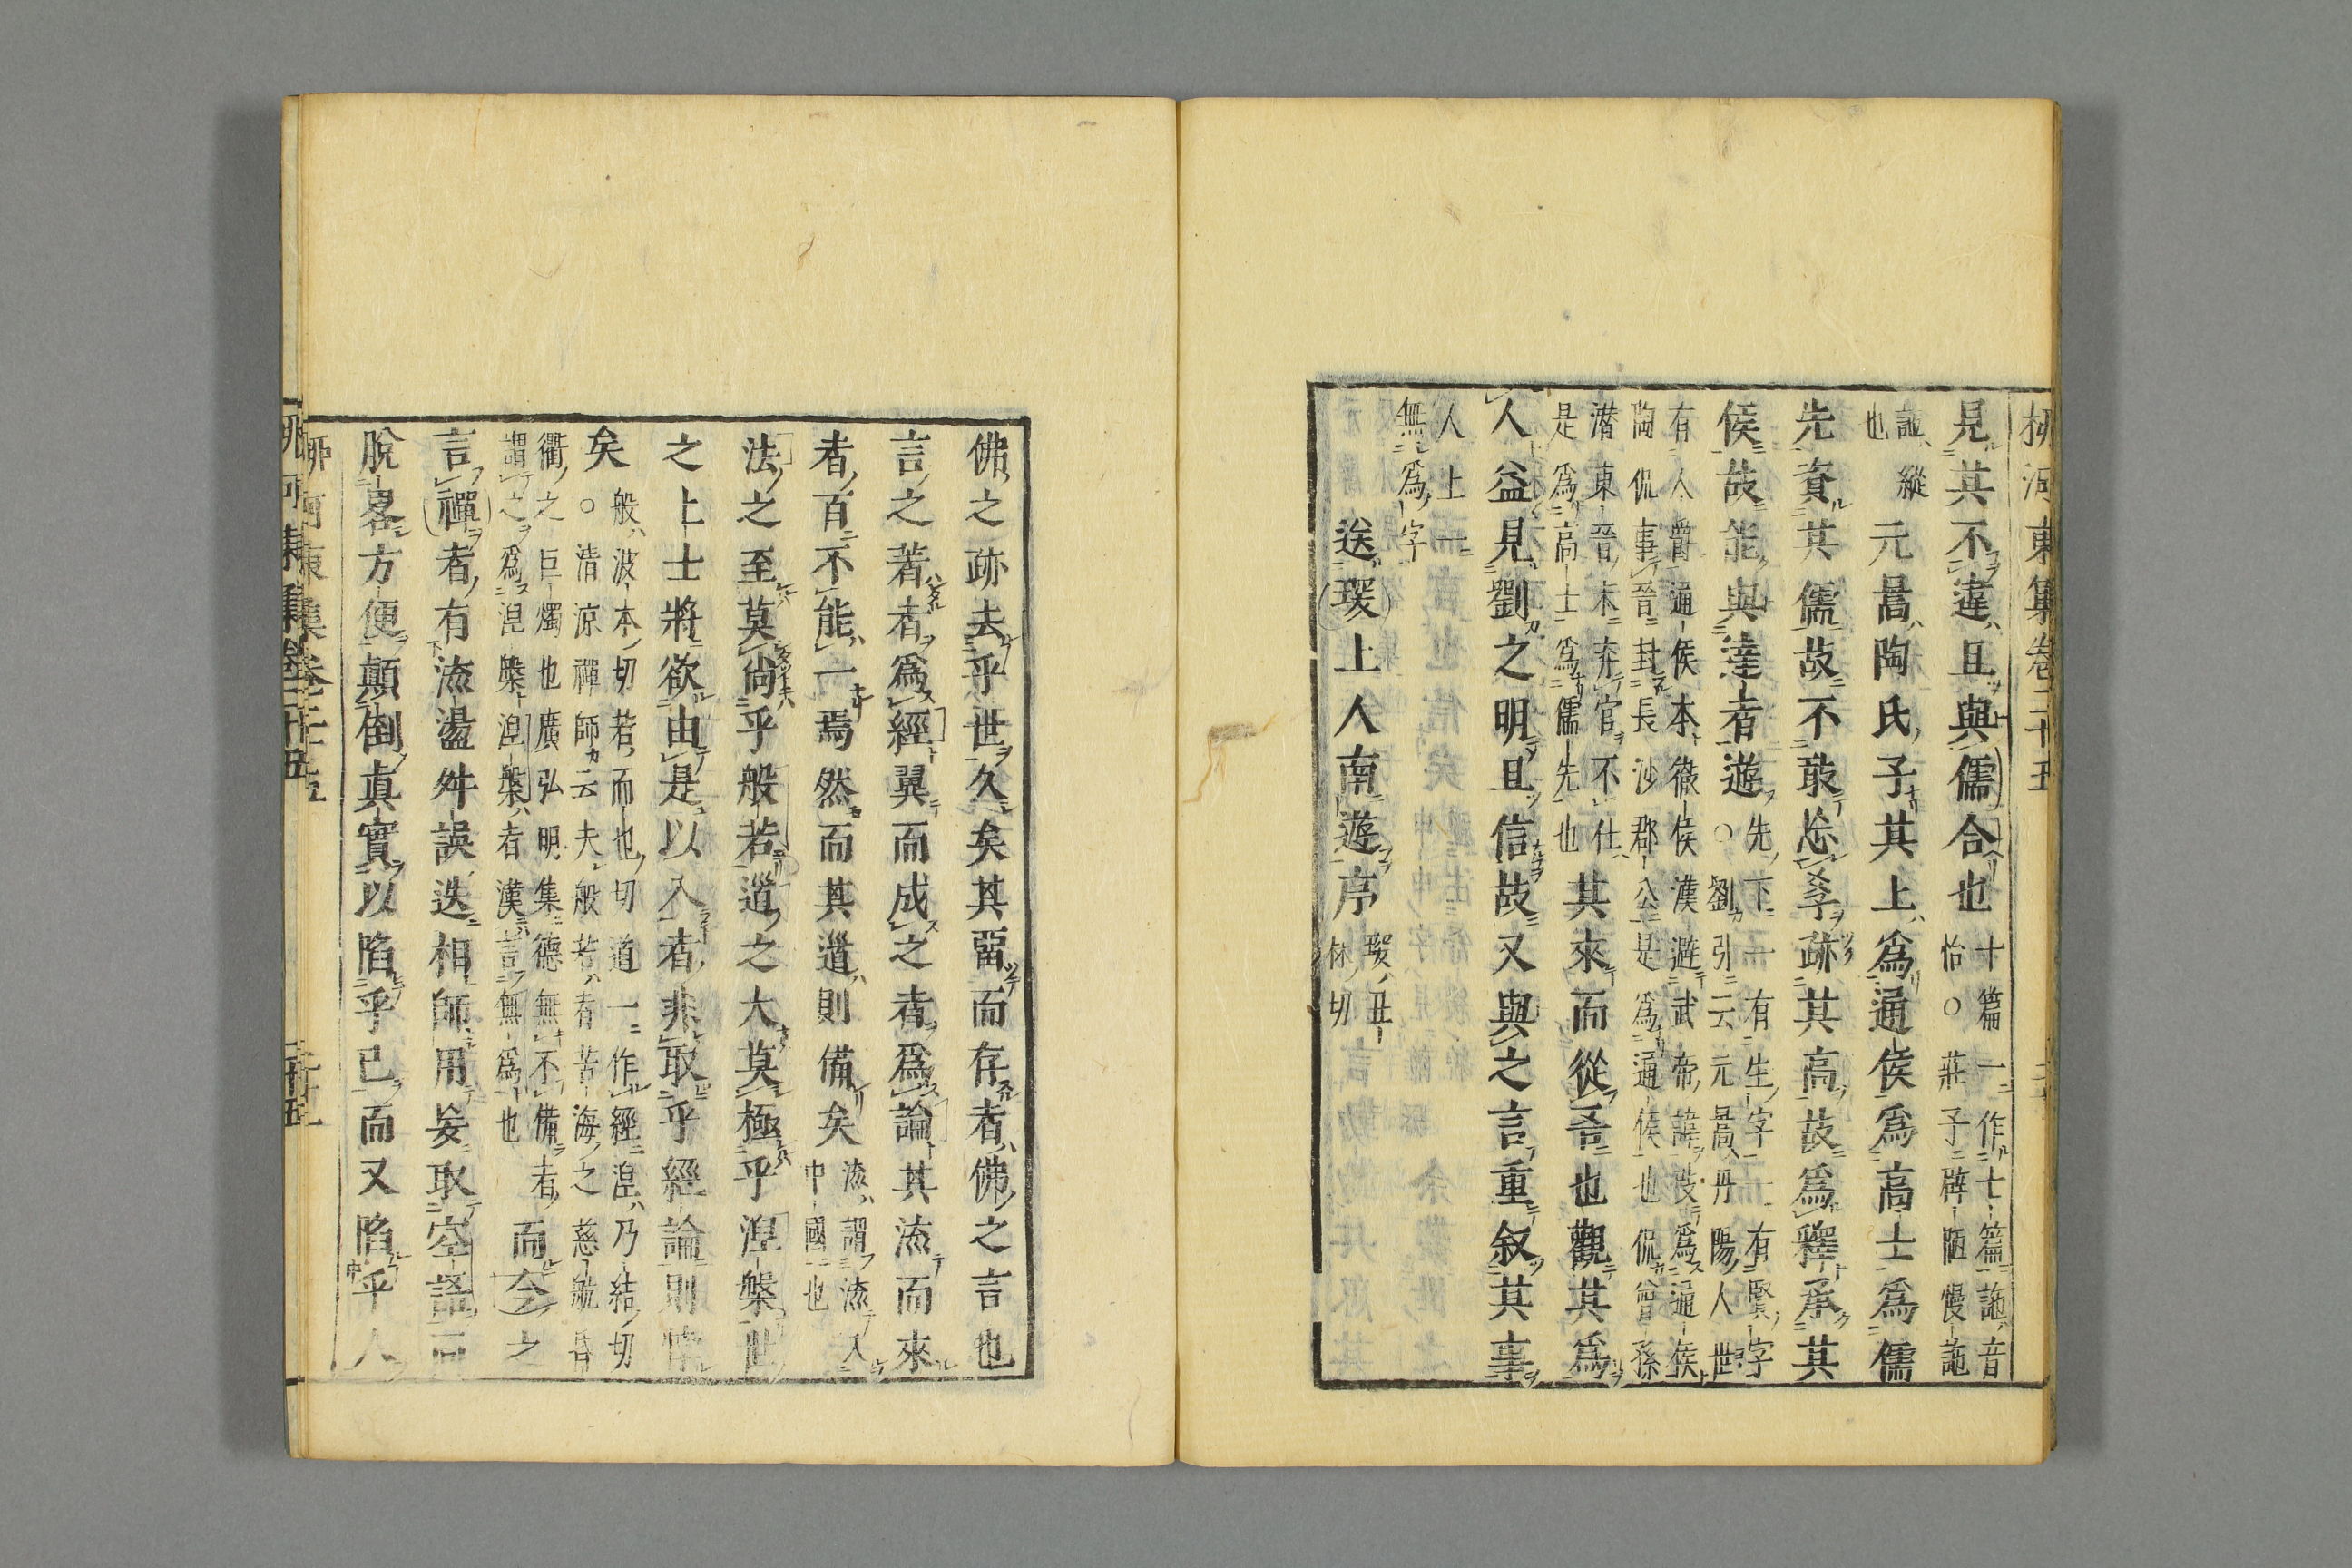 柳河東集卷二十五
見其不違且與儒合也
十篇一作七篇訑音
怡○莊子僻陋慢訑
訑縱
也
元暠陶氏子其上爲通侯爲高士爲儒
先資其儒故不敢忘孝跡其高故爲釋承其
侯故能與達者遊
先下一有生字一有賢字
○劉引云元暠丹陽人世
有人爵通侯本徹侯漢避武帝諱改爲通侯
陶侃事晉封長沙郡公是爲通侯也侃曾孫
潛東晉末弃官不仕
是爲高士爲儒先也
其來而從吾也觀其爲
人益見劉之明且信故又與之言重叙其事
人上一
無爲字
送琛上人南遊序
琛丑
林切
佛之跡去乎世久矣其畱而存者佛之言也
言之著者爲經翼而成之者爲論其流而來
者百不能一焉然而其道則備矣
流謂流入
中國也
法之至莫尚乎般若道之大莫極乎涅槃世
之上士將欲由是以入者非取乎經論則悖
矣
般波本切若而也切道一作經涅乃結切
○清涼禪師云夫般若者苦海之慈航昏
衢之巨燭也廣弘明集德無不備者
謂之爲涅槃涅槃者漢言無爲也
而今之
言禪者有流盪舛誤迭相師用妄取空語而
脫畧方便顛倒真實以陷乎已而又陷乎人
柳河東集卷二十五
二十五